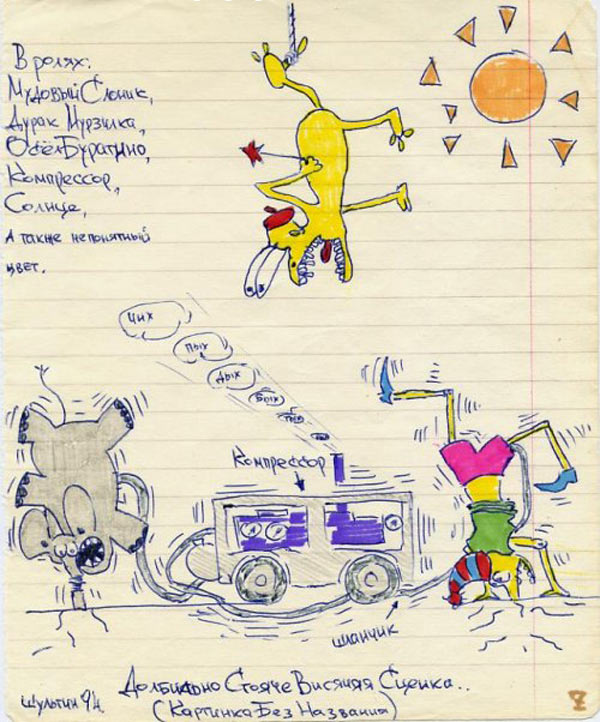 В ролях:
Мудовый Слоник,
Дурак Мурзилка,
Осёл Буратино,
Компрессор,
Солнце,
А также непонятный
цвет.
чих
пых
дых
бых
Компрессор
шланчик
Долбильно Стояче Висячая Сценка..
(Картинка Без Названия)
Шультин 94